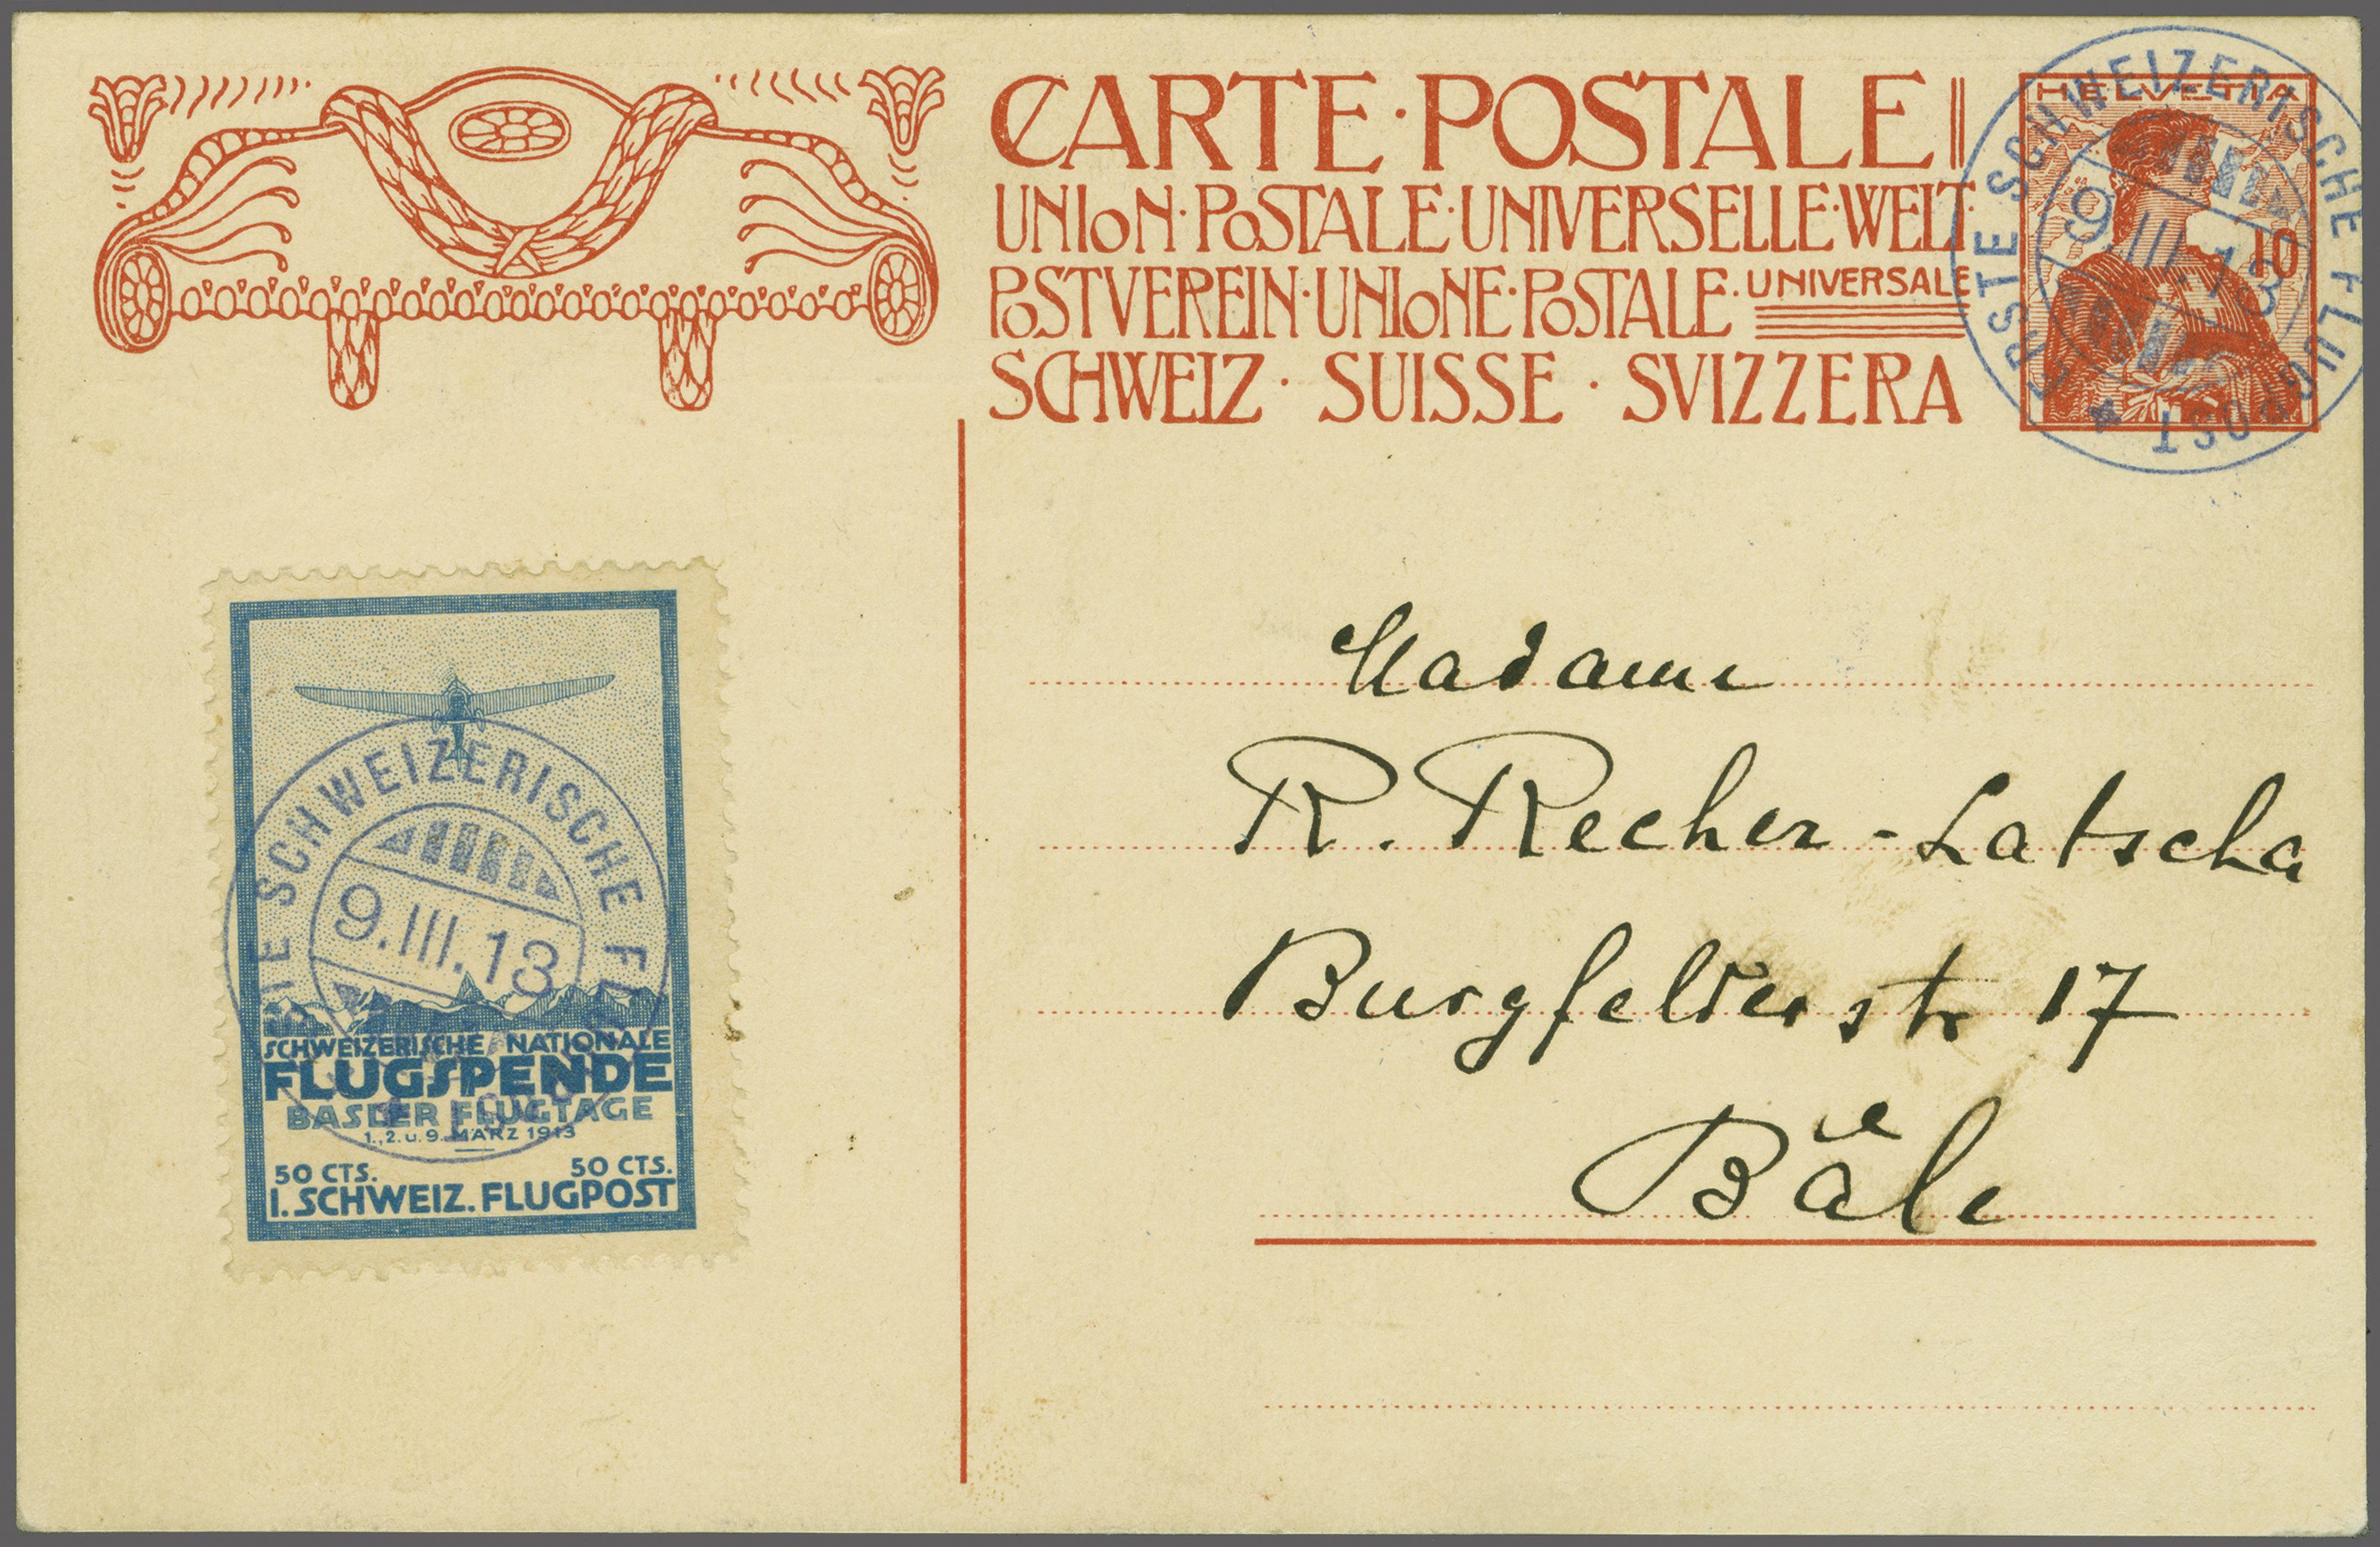 CARTE·POSTALE
UNION·POSTALE·UNIVERSELLE·WELT·
POSTVEREIN·UNIONE·POSTALE·UNIVERSALE
SCHWEIZ · SUISSE · SVIZZERA
HELVETIA
10
ERSTE SCHWEIZERISCHE FLUGPOST
9.III.13
Madame
R. Recher-Latscha
Burgfelderstr 17
Bâle
SCHWEIZERISCHE FL
9.III.13
SCHWEIZERISCHE NATIONALE
FLUGSPENDE
BASLER FLUGTAGE
1., 2. u. 9. MÄRZ 1913
50 CTS. 50 CTS.
I. SCHWEIZ. FLUGPOST